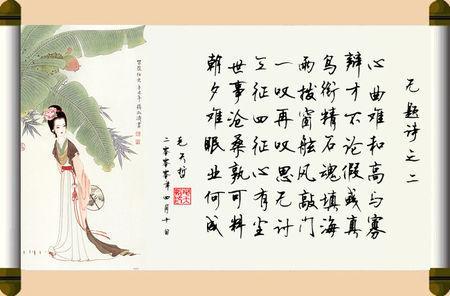 无题诗之二
心曲难和高与寡
辩才不论假或真
鸟衔精石魂填海
雨拨窗舷风敲门
一叹再叹思无计
征四征心有尘
世事沧桑孰可料
朝夕难眠业何成
毛天哲
年四月十日